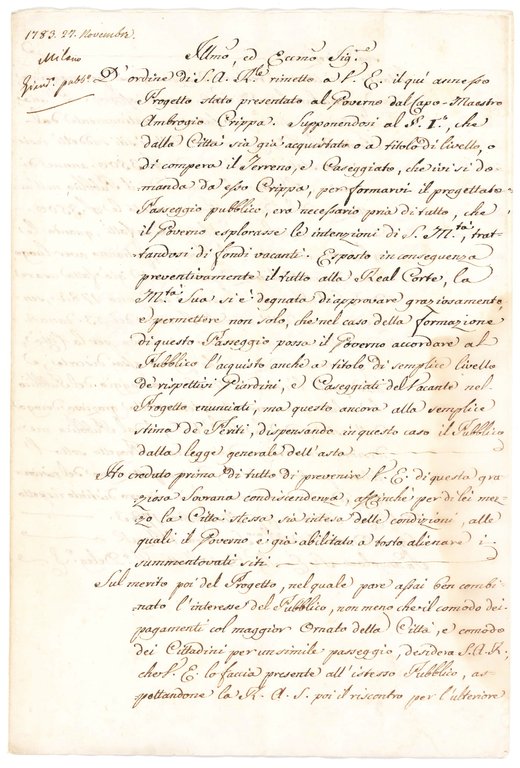 1783. 27. Novembre.
Milano
Giard.ni pubb.ci
Illmo, ed Eccmo Sig.re
D'ordine di S. A. R.le rimetto a V. E. il quì annesso
Progetto stato presentato al Governo dal Capo-Maestro
Ambrogio Crippa. Supponendosi al §. I.o, che
dalla Città sia già acquistato o a titolo di livello, o
di compera il Terreno, e Caseggiato, che ivi si do-
manda da esso Crippa, per formarvi il progettato
Passeggio pubblico, era necessario pria di tutto, che
il Governo esplorasse le intenzioni di S. M.tà, trat-
tandosi di fondi vacanti. Esposto in conseguenza
preventivamente il tutto alla Real Corte, la
M.tà Sua si è degnata di approvare graziosamente,
e permettere non solo, che nel caso della formazione
di questo Passeggio possa il Governo accordare al
Pubblico l'acquisto anche a titolo di semplice livello
de rispettivi Giardini, e Caseggiati del Vacante nel
Progetto enunciati, ma questo ancora alla semplice
stima de Periti, dispensando in questo caso il Pubblico
dalla legge generale dell'asta
Ho creduto prima di tutto di prevenire V. E. di questa gra-
ziosa Sovrana condiscendenza, affinchè per di lei mez-
zo la Città stessa sia intesa delle condizioni, alle
quali il Governo è già abilitato a tosto alienare i
summentovati siti
Sul merito poi del Progetto, nel quale pare assai ben combi-
nato l'interesse del Pubblico, non meno che il comodo dei
pagamenti col maggior Ornato della Città, e comodo
dei Cittadini per un simile passeggio, desidera S. A. R.,
che V. E. lo faccia presente all'istesso Pubblico, as-
pettandone la R. A. S. poi il riscontro per l'ulteriore